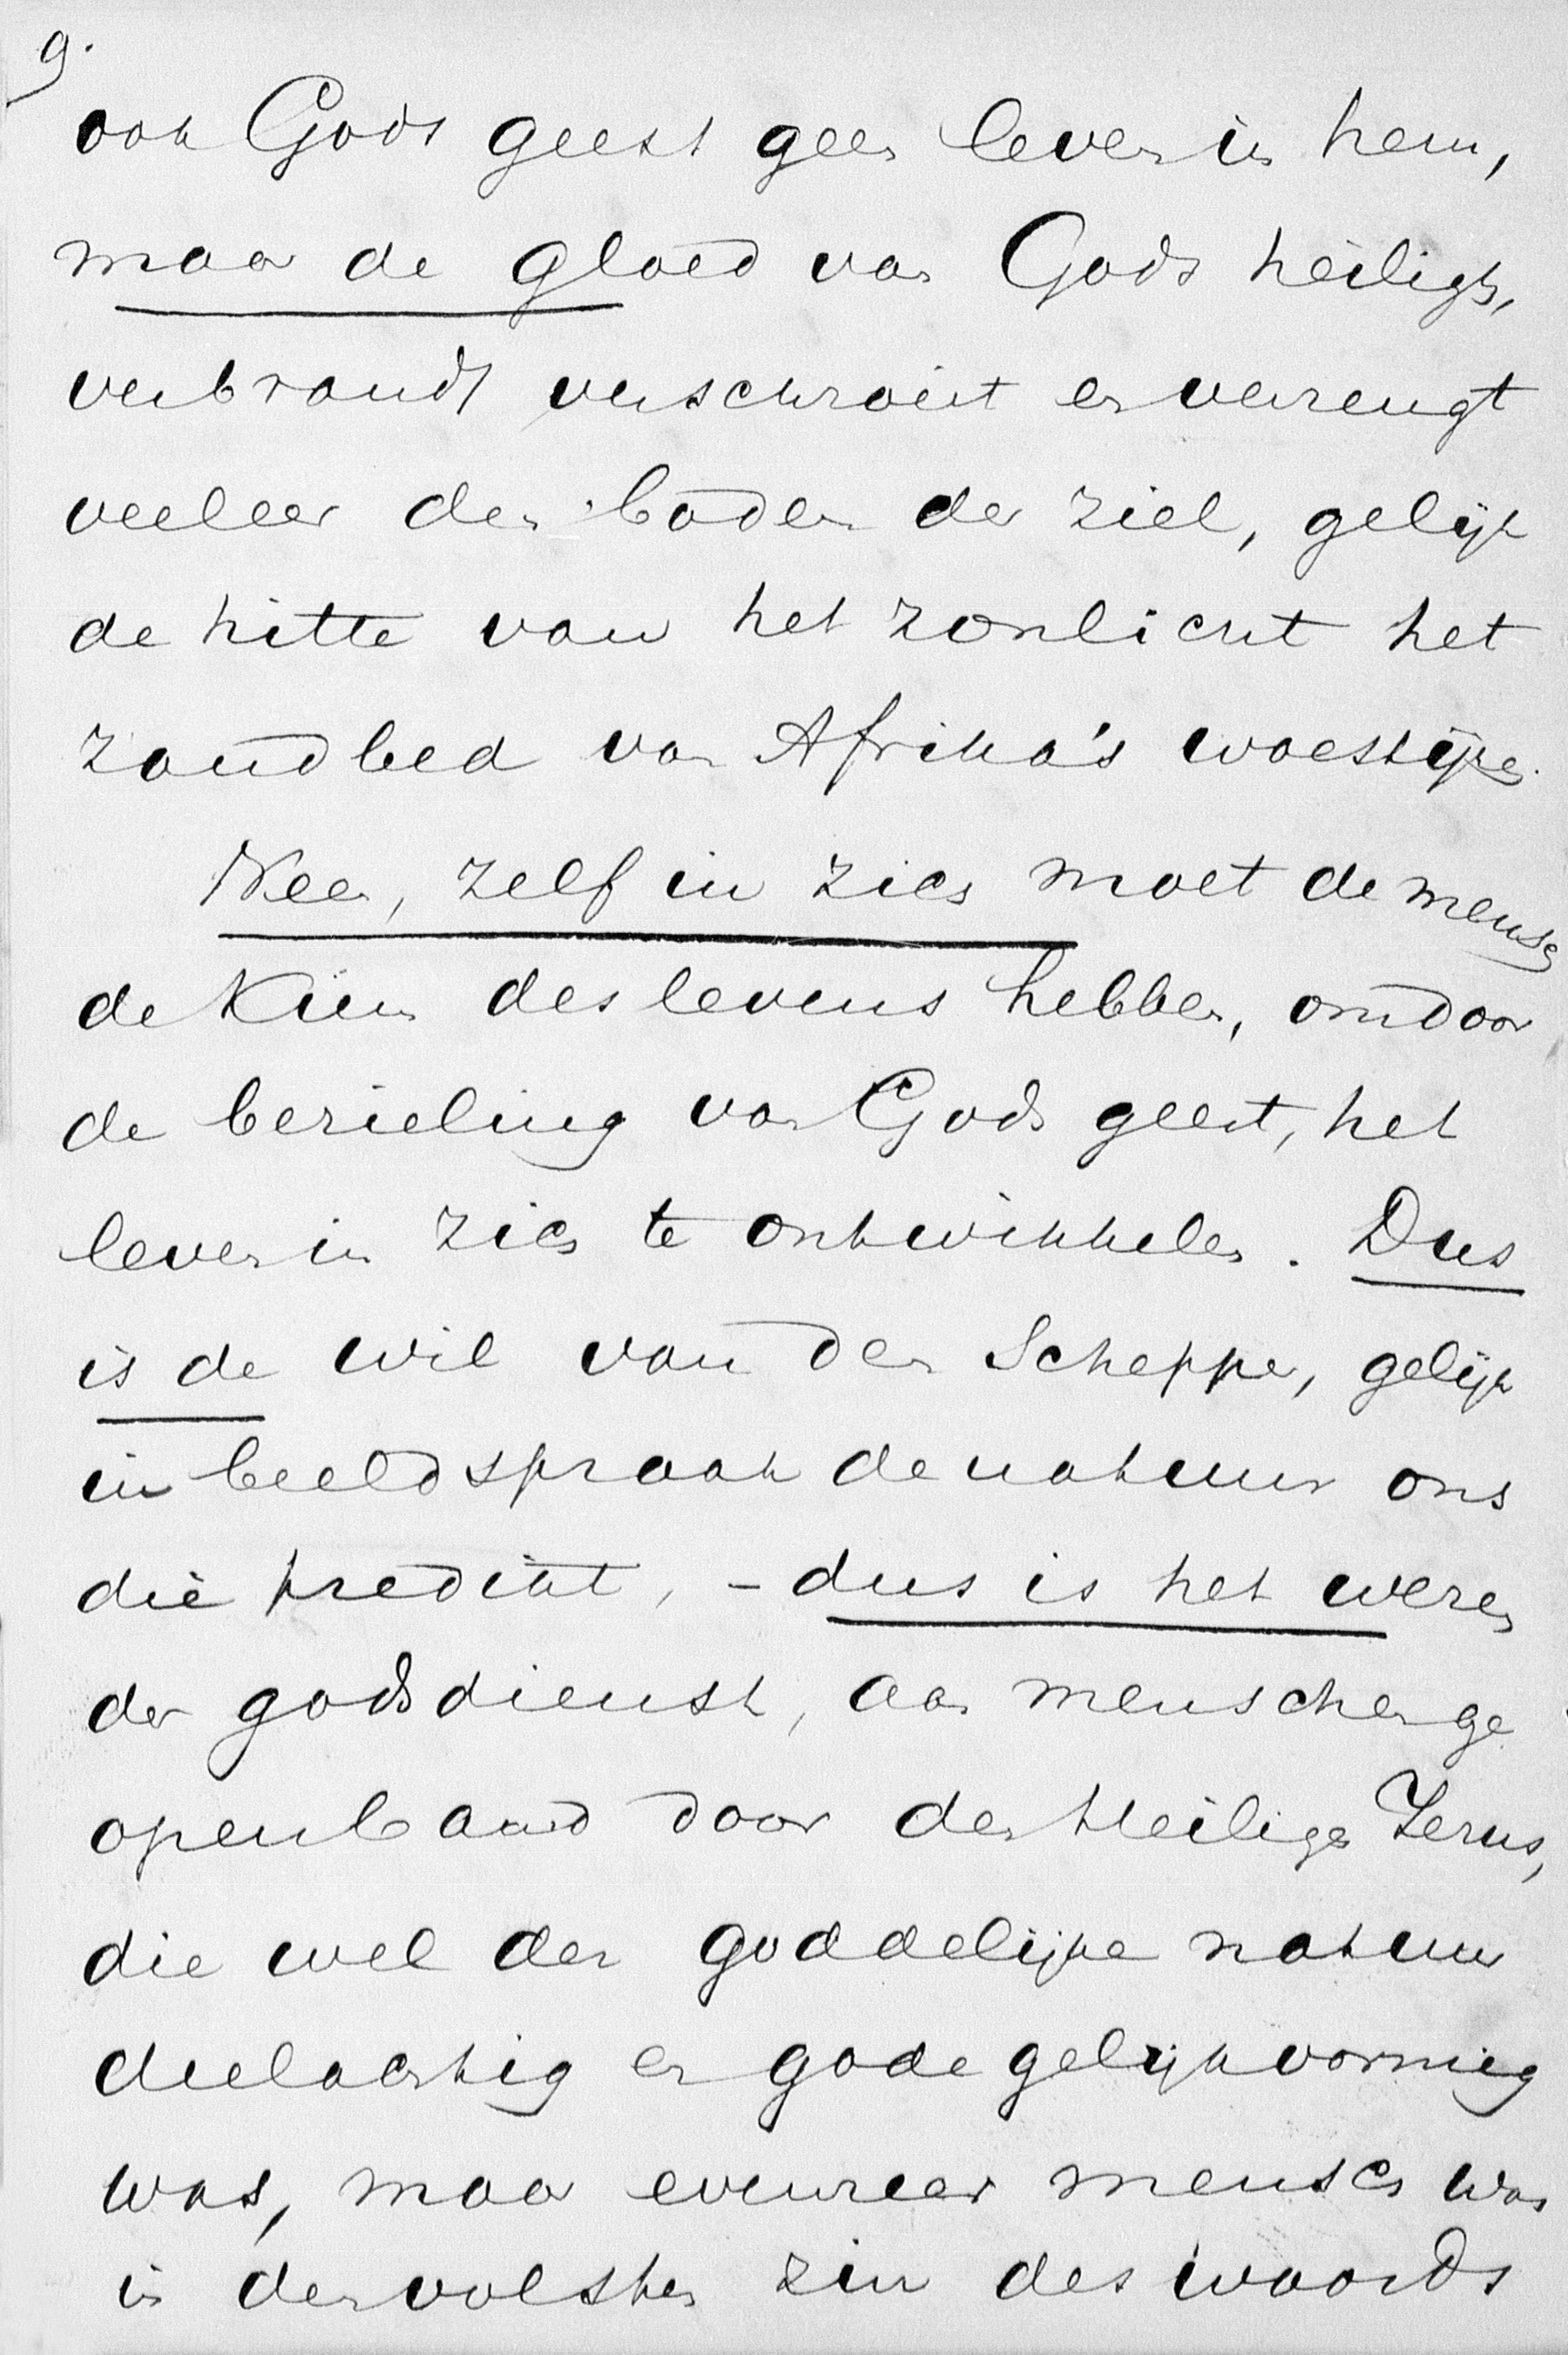 9.
ook Gods geest geen leven in hem,
maar de gloed van Gods heiligh,
verbrandt verschroeit en verzengt
veeleer den boden der ziel, gelijk
de hitte van het zonlicht het
zandbed van Afrika's woestijnen.
Neen, zelf in zich moet de mensch
de kiem des levens hebben, om door
de bezieling van Gods geest, het
leven in zich te ontwikkelen. Dus
is de wil van den Schepper, gelijk
in beeldspraak de natuur ons
die predikt, - dus is het wezen
der godsdienst, aan menschen ge
openbaard door den Heiligen Jezus,
die wel der goddelijke natuur
deelachtig en gode gelijkvormig
was, maar evenzeer mensch was
in den volsten zin des woords